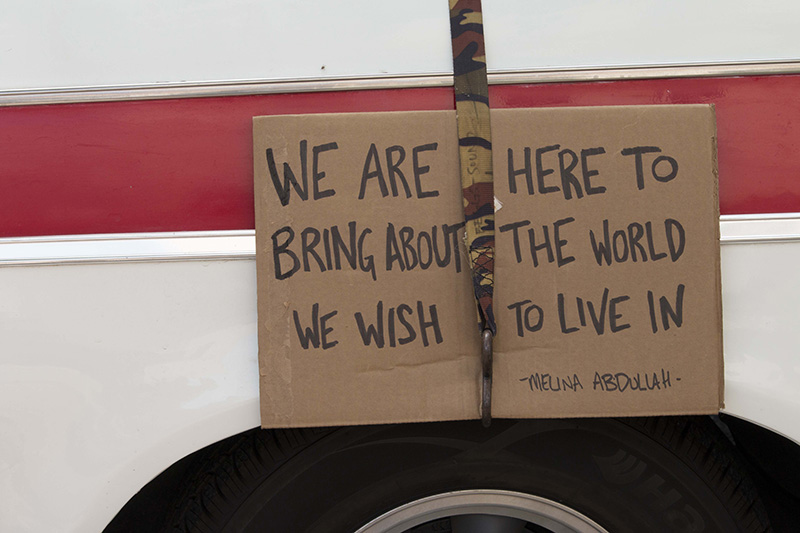 WE ARE HERE TO
BRING ABOUT THE WORLD
WE WISH TO LIVE IN
-MELINA ABDULLAH-